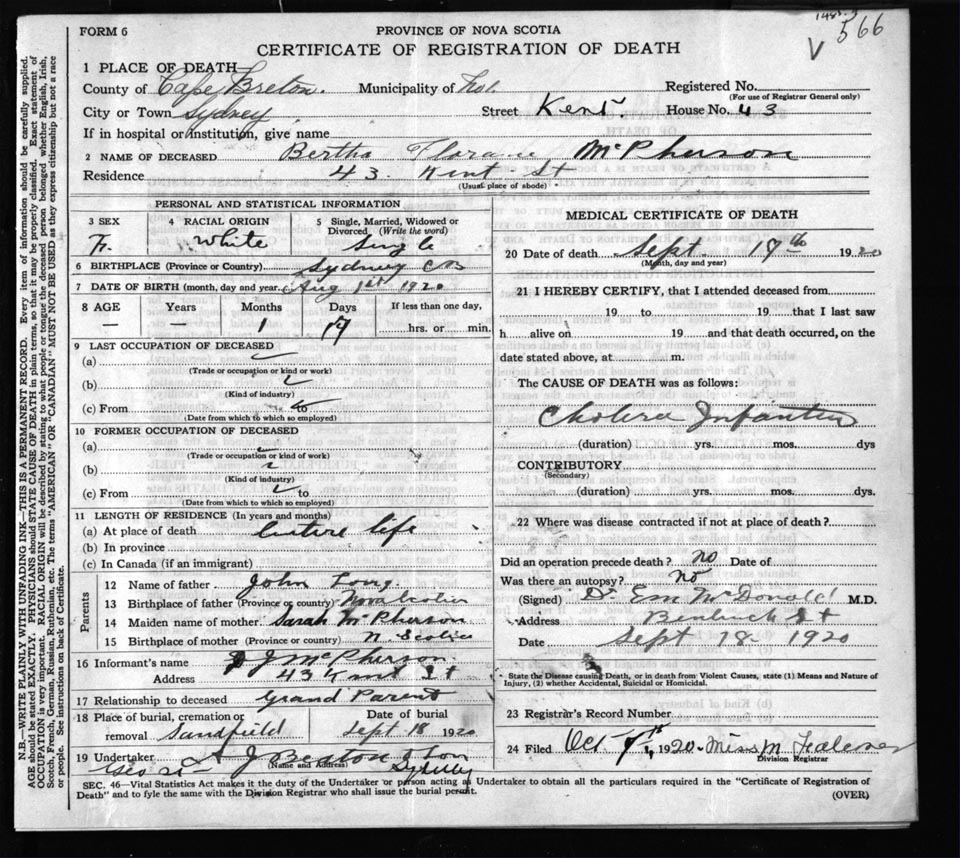 566
V
FORM 6
PROVINCE OF NOVA SCOTIA
CERTIFICATE OF REGISTRATION OF DEATH
N.B.—WRITE PLAINLY WITH UNFADING INK—THIS IS A PERMANENT RECORD. Every item of information should be carefully supplied.
AGE should be stated EXACTLY. PHYSICIANS should STATE CAUSE OF DEATH in plain terms, so that it may be properly classified. Exact statement of
OCCUPATION is very important. RACIAL ORIGIN will be described by stating to what people or tongue the deceased person belonged whether English, Irish,
Scotch, French, German, Russian, Ruthenian, etc. The terms "AMERICAN" OR "CANADIAN" MUST NOT BE USED as they express citizenship but not a race
or people. See instructions on back of Certificate.
1 PLACE OF DEATH
County of Cape Breton. Municipality of Registered No.
(For use of Registrar General only)
City or Town Sydney Street Kent. House No. 43
If in hospital or institution, give name
2 NAME OF DECEASED Bertha Florance McPherson
Residence 43. Kent St
(Usual place of abode)
PERSONAL AND STATISTICAL INFORMATION
3 SEX 4 RACIAL ORIGIN 5 Single, Married, Widowed or Divorced (Write the word)
F. White Single
6 BIRTHPLACE (Province or Country) Sydney CB
7 DATE OF BIRTH (month, day and year) Aug 1st 1920
8 AGE Years Months Days If less than one day,
— — 1 17 hrs. or min.
9 LAST OCCUPATION OF DECEASED
(a)
(Trade or occupation or kind or work)
(b)
(Kind of industry)
(c) From to
(Date from which to which so employed)
10 FORMER OCCUPATION OF DECEASED
(a)
(Trade or occupation or kind of work)
(b)
(Kind of industry)
(c) From to
(Date from which to which so employed)
11 LENGTH OF RESIDENCE (In years and months)
(a) At place of death Entire life
(b) In province
(c) In Canada (if an immigrant)
Parents
12 Name of father John Long.
13 Birthplace of father (Province or country) Nova Scotia
14 Maiden name of mother Sarah McPherson
15 Birthplace of mother (Province or country) N. Scotia
16 Informant's name J McPherson.
Address 43 Kent St
17 Relationship to deceased Grand Parent
18 Place of burial, cremation or removal Sandfield Date of burial Sept 18 1920
19 Undertaker A J Beaton & Son
(Name and Address)
Sydney
MEDICAL CERTIFICATE OF DEATH
20 Date of death Sept. 17th 1920
(Month, day and year)
21 I HEREBY CERTIFY, that I attended deceased from
19 to 19 that I last saw
h alive on 19 and that death occurred, on the
date stated above, at m.
The CAUSE OF DEATH was as follows:
Cholera Infantum
(duration) yrs. mos. dys
CONTRIBUTORY
(Secondary)
(duration) yrs. mos. dys.
22 Where was disease contracted if not at place of death?
Did an operation precede death? No Date of
Was there an autopsy? No
(Signed) Dr Em McDonald M.D.
Address Bentinck St
Date Sept 18 1920
State the Disease causing Death, or in death from Violent Causes, state (1) Means and Nature of
Injury, (2) whether Accidental, Suicidal or Homicidal.
23 Registrar's Record Number
24 Filed Oct 1920 Miss M
Division Registrar
SEC. 46—Vital Statistics Act makes it the duty of the Undertaker or person acting as Undertaker to obtain all the particulars required in the "Certificate of Registration of
Death" and to fyle the same with the Division Registrar who shall issue the burial permit.
(OVER)